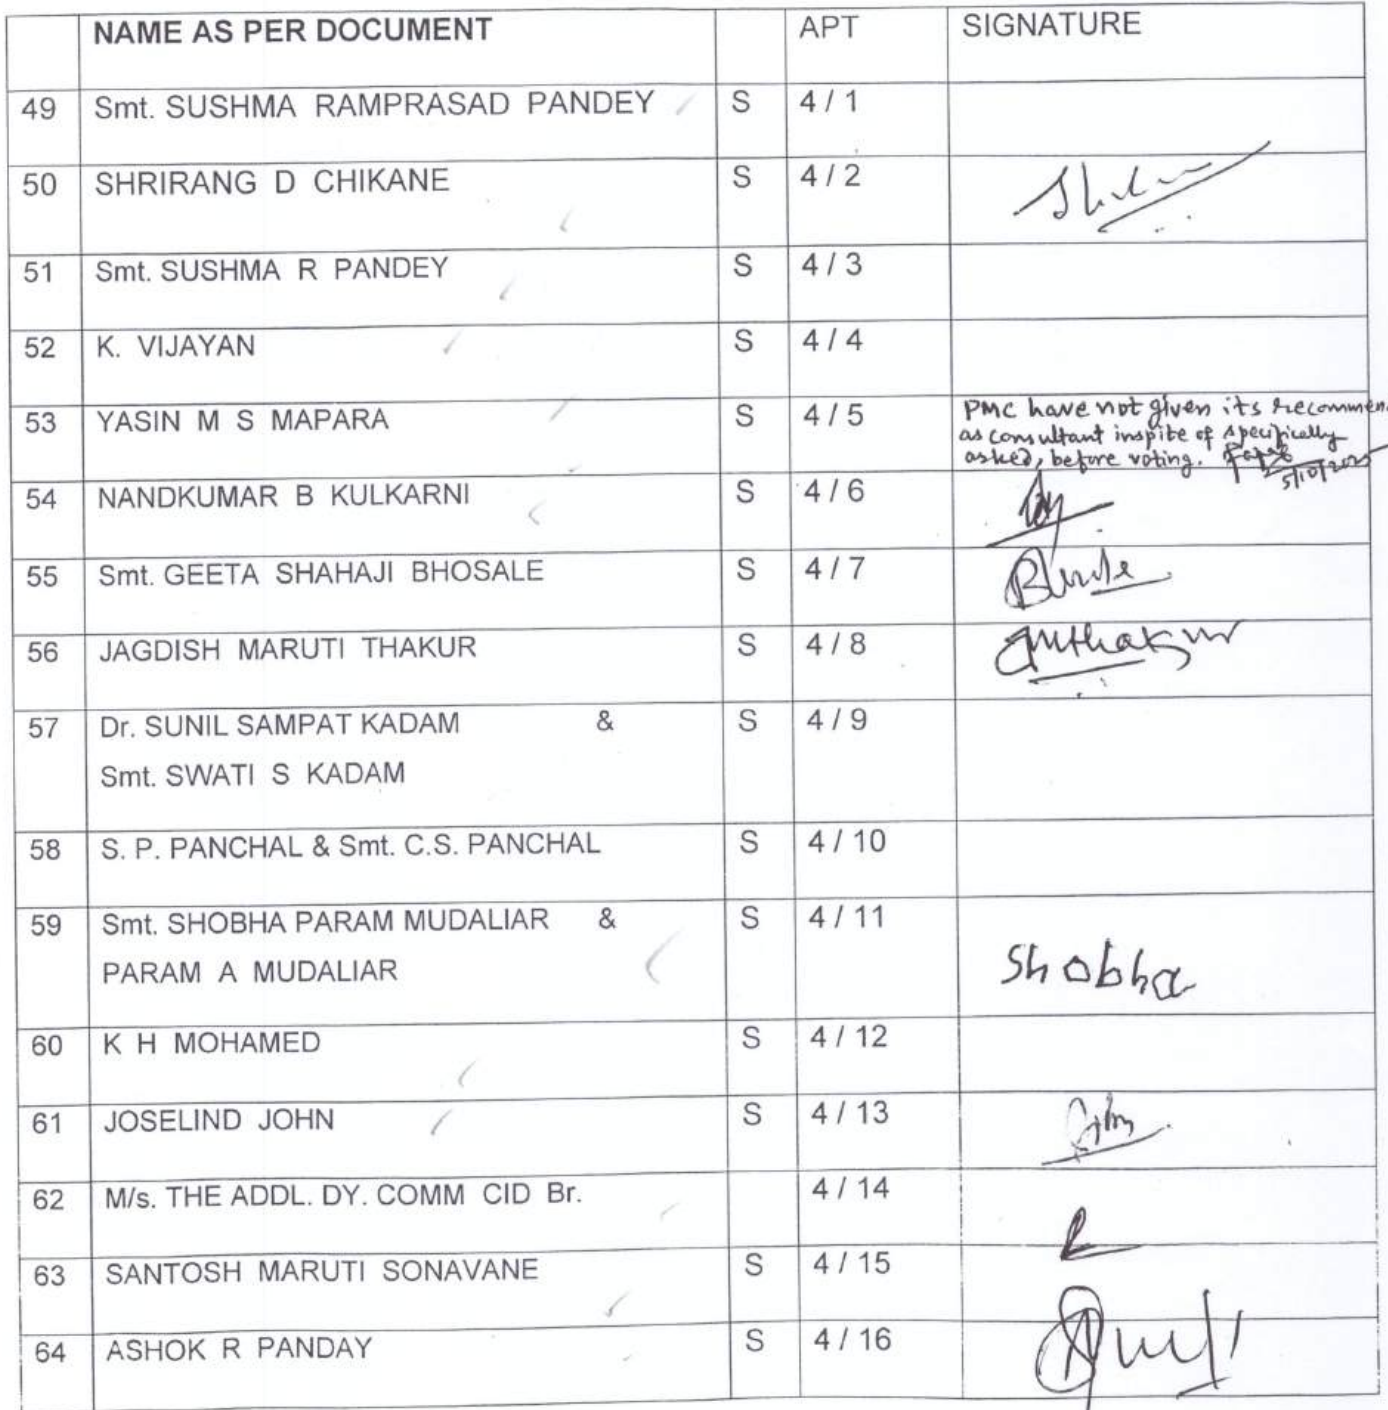 NAME AS PER DOCUMENT APT SIGNATURE
49 Smt. SUSHMA RAMPRASAD PANDEY S 4 / 1
50 SHRIRANG D CHIKANE S 4 / 2
51 Smt. SUSHMA R PANDEY S 4 / 3
52 K. VIJAYAN S 4 / 4
53 YASIN M S MAPARA S 4 / 5 PMC have not given its recommen
as consultant inspite of specifically
asked, before voting.
54 NANDKUMAR B KULKARNI S 4 / 6
55 Smt. GEETA SHAHAJI BHOSALE S 4 / 7
56 JAGDISH MARUTI THAKUR S 4 / 8 Jmthakur
57 Dr. SUNIL SAMPAT KADAM & S 4 / 9
Smt. SWATI S KADAM
58 S. P. PANCHAL & Smt. C.S. PANCHAL S 4 / 10
59 Smt. SHOBHA PARAM MUDALIAR & S 4 / 11
PARAM A MUDALIAR Shobha
60 K H MOHAMED S 4 / 12
61 JOSELIND JOHN S 4 / 13
62 M/s. THE ADDL. DY. COMM CID Br. 4 / 14
63 SANTOSH MARUTI SONAVANE S 4 / 15
64 ASHOK R PANDAY S 4 / 16